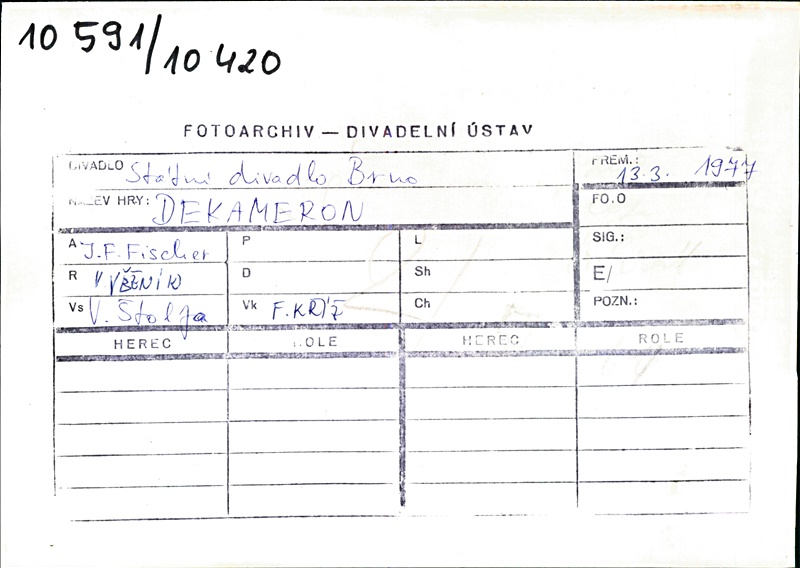 10 591/10 420
FOTOARCHIV — DIVADELNÍ ÚSTAV
DIVADLO Státní divadlo Brno
PREM.: 13.3. 1977
NÁZEV HRY: DEKAMERON
FOTO
A J.F. Fischer
P
L
SIG.:
R VĚŽNÍK
D
Sh
E/
Vs V. Štolfa
Vk F. KŘÍŽ
Ch
POZN.:
HEREC ROLE HEREC ROLE